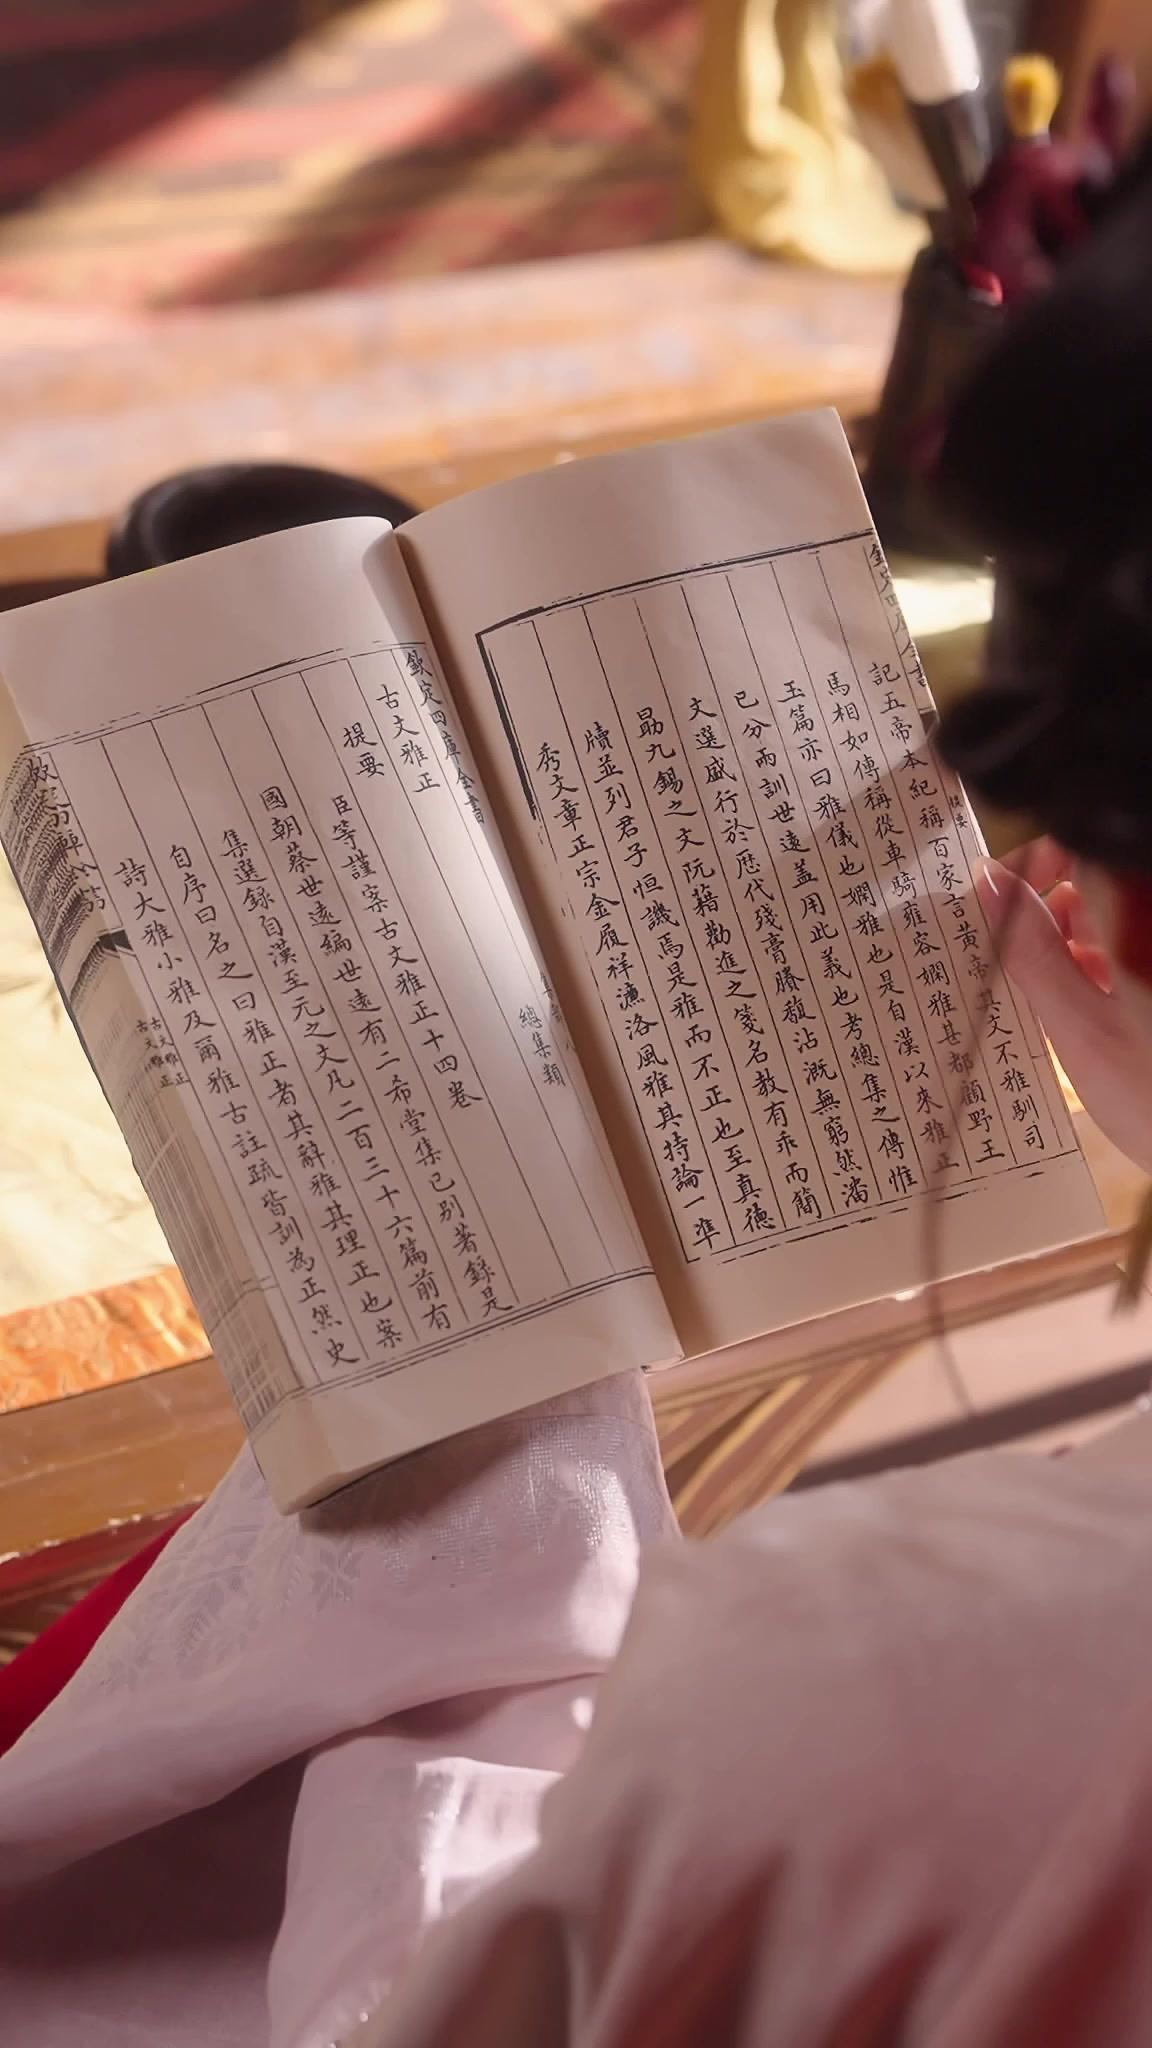 欽定四庫全書
提要
記五帝本紀稱百家言黃帝其文不雅馴司
馬相如傳稱從車騎雍容嫻雅甚都顧野王
玉篇亦曰雅儀也嫻雅也是自漢以來雅正
已分兩訓世遠蓋用此義也考總集之傳惟
文選盛行於歷代殘膏賸馥沾溉無窮然潘
勗九錫之文阮籍勸進之箋名教有乖而簡
牘並列君子恒譏焉是雅而不正也至真德
秀文章正宗金履祥濂洛風雅其持論一準
欽定四庫全書 集部八
古文雅正 總集類
提要
臣等謹案古文雅正十四卷
國朝蔡世遠編世遠有二希堂集已別著錄是
集選錄自漢至元之文凡二百三十六篇前有
自序曰名之曰雅正者其辭雅其理正也案
詩大雅小雅及爾雅古註疏皆訓為正然史
古文雅正